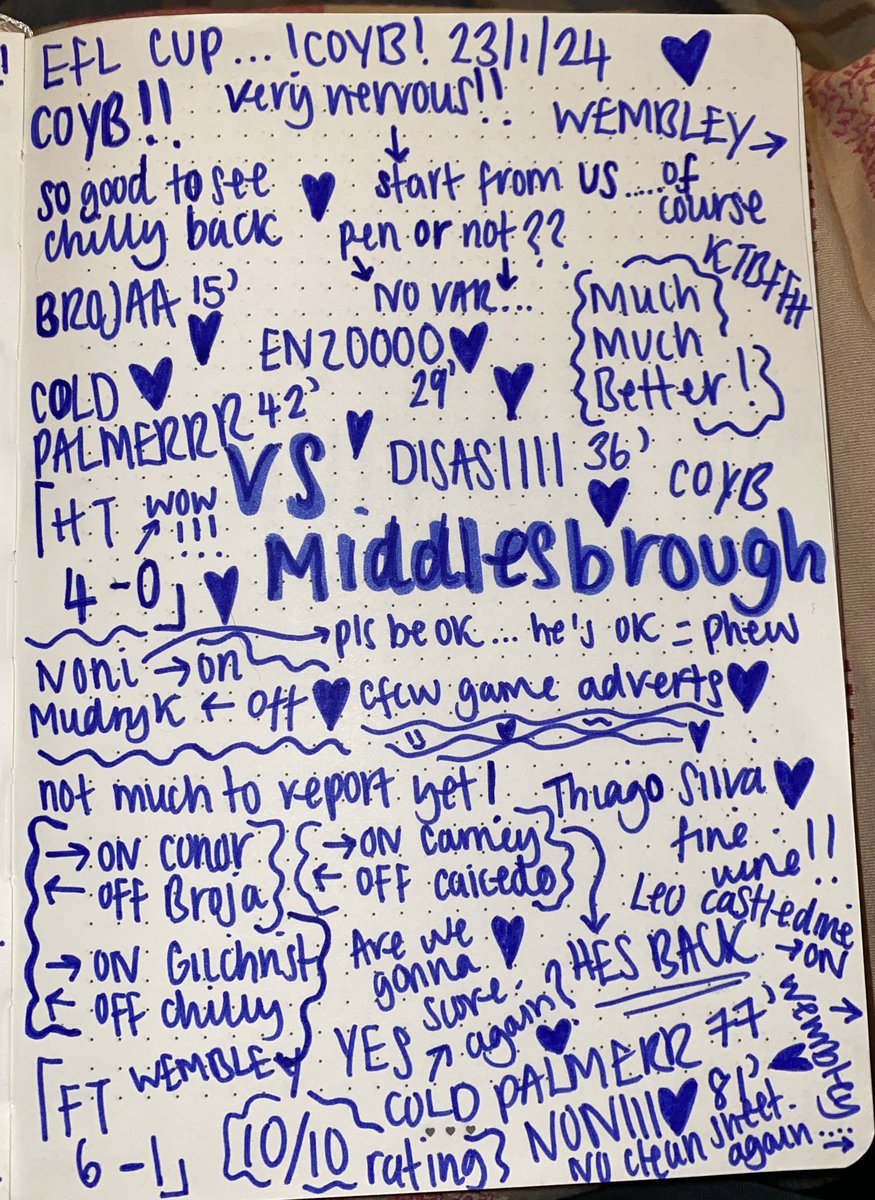 EFL CUP... !COYB! 23/1/24
COYB!!
very nervous!!
WEMBLEY →
so good to see
chilly back
start from us.....of
course
pen or not??
NO VAR...
KTBFFH
BROJAA 15'
ENZOOOO
29'
Much
Much
Better!
COLD
PALMERRR 42'
DISASIIII 36'
COYB
VS
Middlesbrough
HT WOW
!!!
4-0
pls be ok... he's ok = phew
Noni → on
Mudryk ← off
cfcw game adverts
not much to report yet!
Thiago Silva
fine
wine!!
→ ON conor
← off Broja
→ ON carney
← OFF caicedo
HES BACK
Leo casttedine
→ ON
→ ON Gilchrist
← OFF chilly
Are we
gonna
score
again?
YES
COLD PALMERR 77'
NONIII 81'
WEMBLEY →
FT WEMBLEY
6-1
10/10
rating
NO clean sheet
again....→